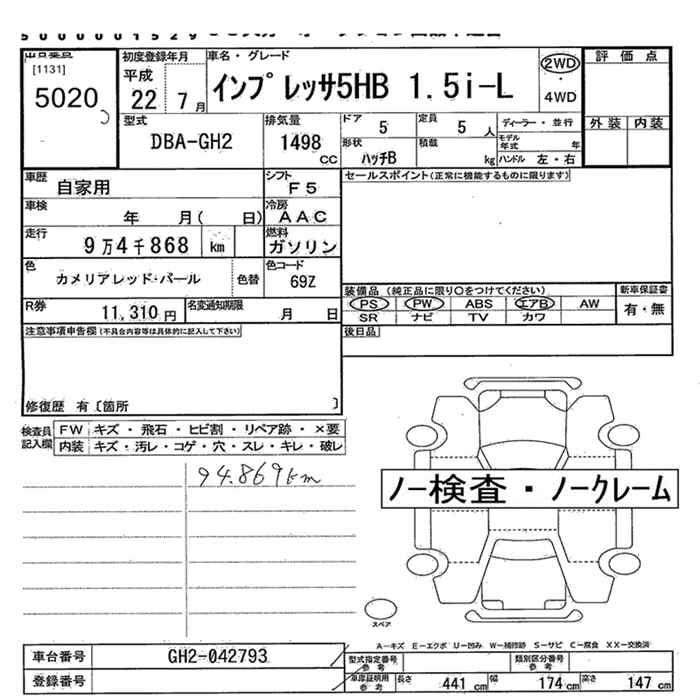 出品番号 初度登録年月 車名・グレード 評価点
[1131]
5020
平成
22 7月
インプレッサ5HB 1.5i-L
2WD
・
4WD
外装 内装
型式
DBA-GH2
排気量
1498
cc
ドア 5
定員 5人
ディーラー・並行
形状 ハッチB
積載 kg
モデル年式 年
ハンドル 左・右
車歴
自家用
シフト
F5
セールスポイント(正常に機能するものに限ります)
車検
年 月( 日)
冷房
AAC
走行
9万4千868 km
燃料
ガソリン
色
カメリアレッド・パール
色替
色コード
69Z
装備品(純正品に限り○をつけてください)
新車保証書
PS PW ABS エアB AW
有・無
SR ナビ TV カワ
R券
11,310円
名変通知期限
月 日
後日品
注意事項申告欄(不具合内容等は具体的に記入して下さい)
修復歴 有〔箇所 〕
検査員
記入欄
FW キズ・飛石・ヒビ割・リペア跡・×要
内装 キズ・汚レ・コゲ・穴・スレ・キレ・破レ
94.869km
ノー検査・ノークレーム
スペア
A-キズ E-エクボ U-凹み W-補修跡 S-サビ C-腐食 XX-交換済
車台番号 GH2-042793
型式指定番号
参考
類別区分番号
参考
登録番号
車庫証明用
参考
長さ 441cm 幅 174cm 高さ 147cm